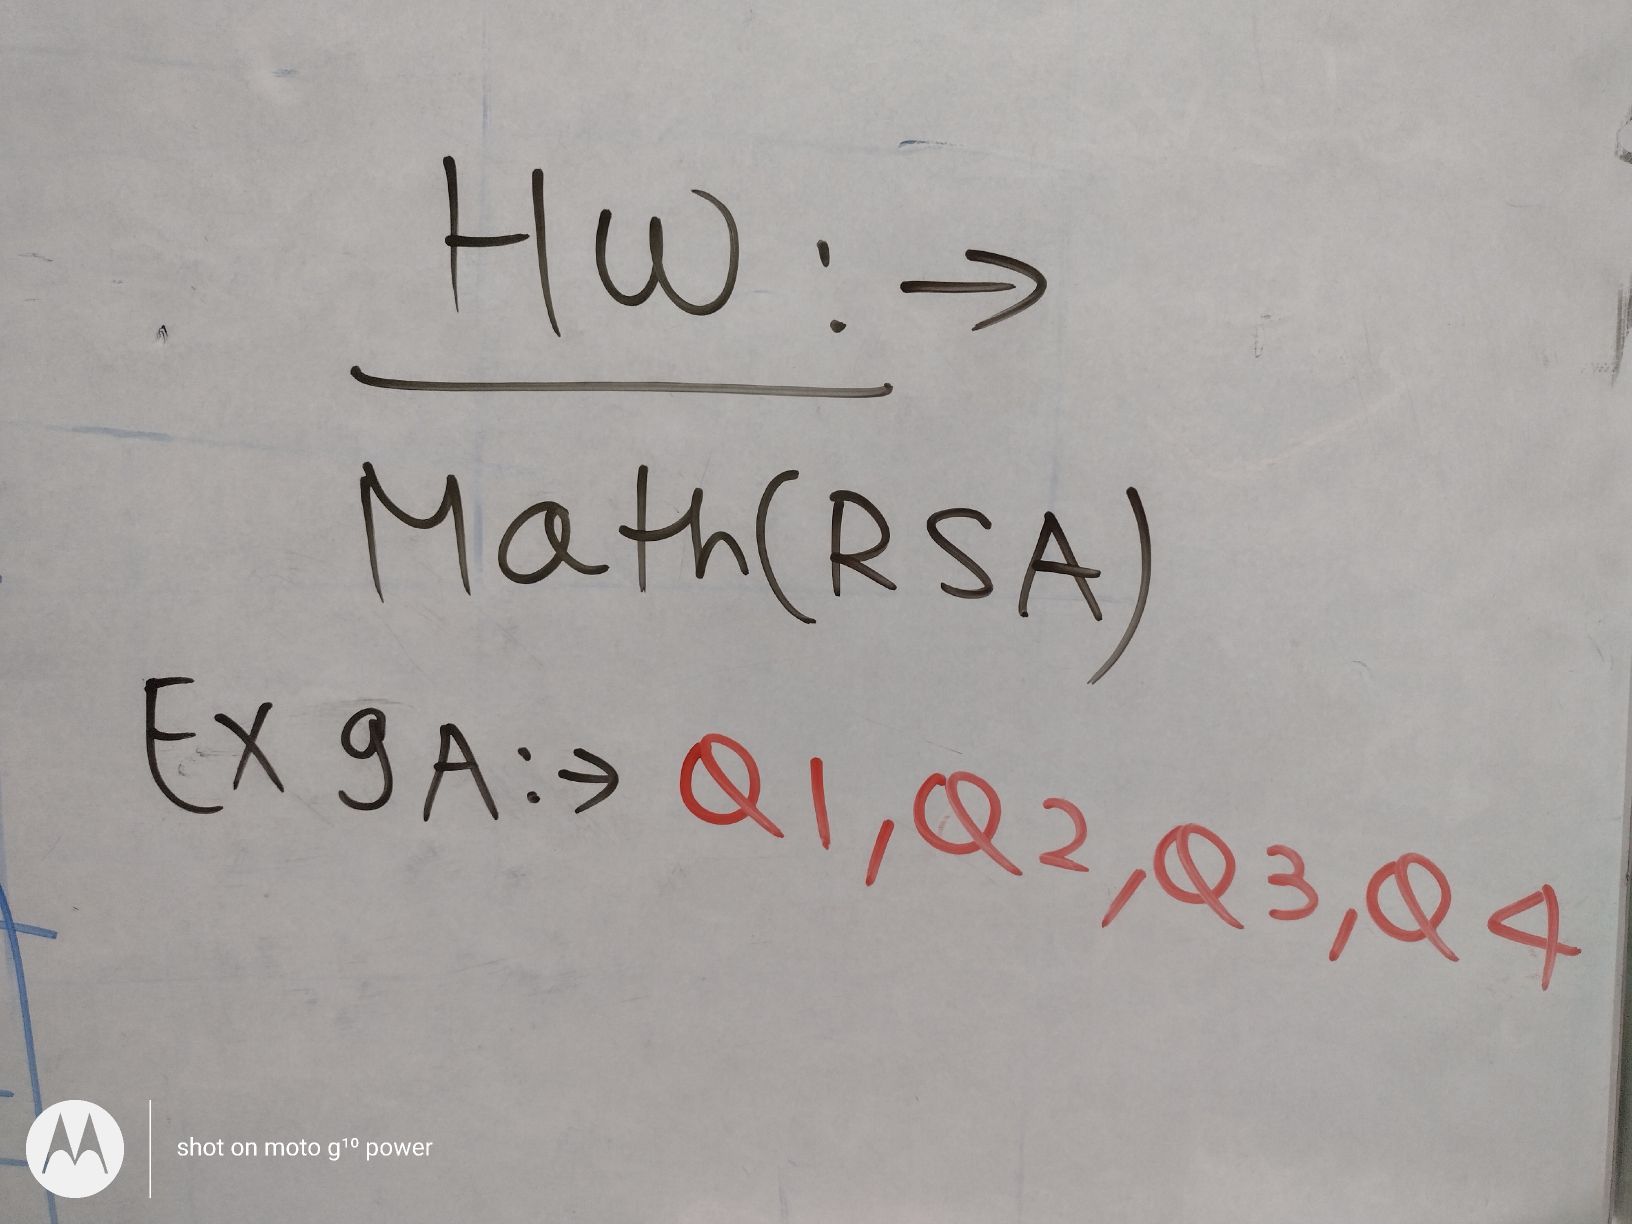 HW :→
Math(RSA)
Ex 9A:→ Q1, Q2, Q3, Q4
shot on moto g¹⁰ power